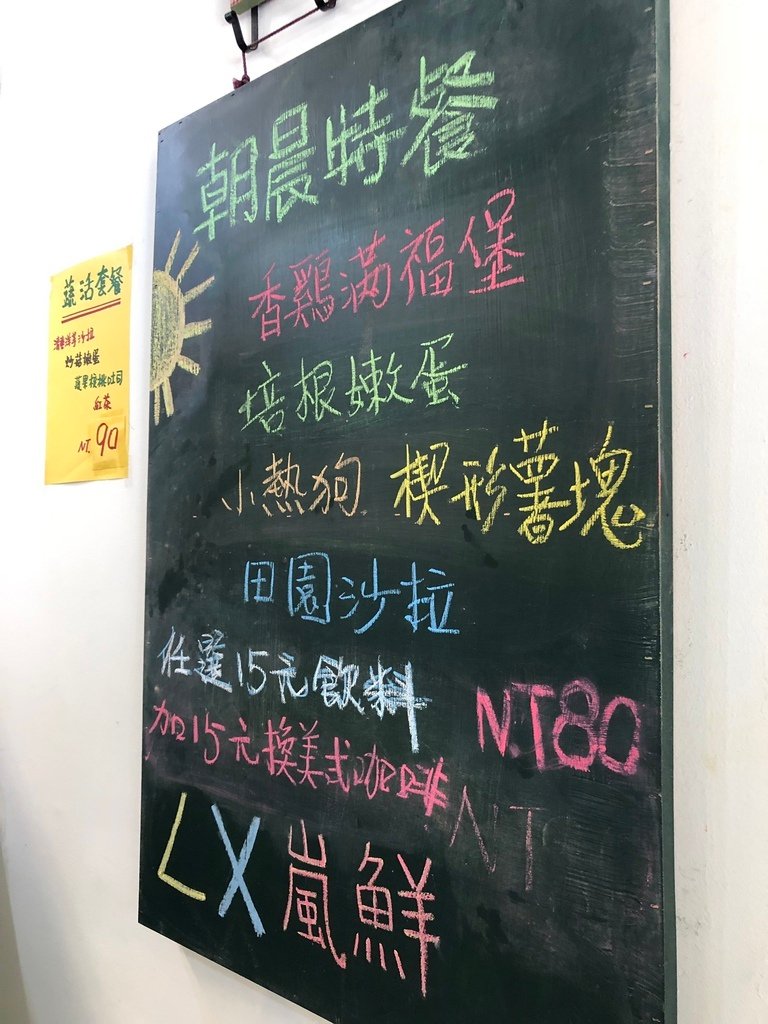 朝晨時餐
香鷄滿福堡
培根嫩蛋
小熱狗 楔形薯塊
田園沙拉
任選15元飲料
加15元換美式咖啡
NT80
NT
LX嵐鮮
蔬活套餐
沙拉
炒菇嫩蛋
蔬果核桃吐司
紅茶
NT. 90